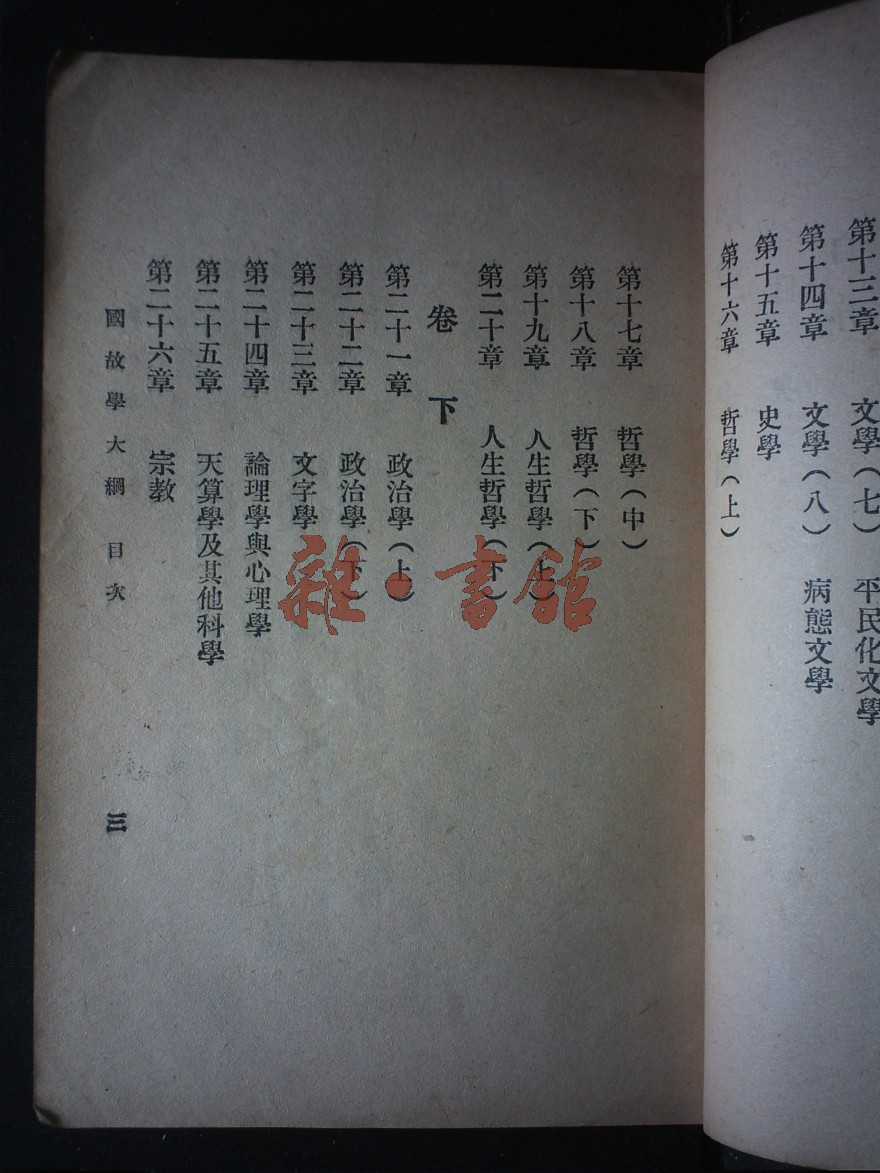 第十三章 文學(七) 平民化文學
第十四章 文學(八) 病態文學
第十五章 史學
第十六章 哲學(上)
第十七章 哲學(中)
第十八章 哲學(下)
第十九章 人生哲學(上)
第二十章 人生哲學(下)
卷下
第二十一章 政治學(上)
第二十二章 政治學(下)
第二十三章 文字學
第二十四章 論理學與心理學
第二十五章 天算學及其他科學
第二十六章 宗教
國故學大綱 目次
三
雜·書館